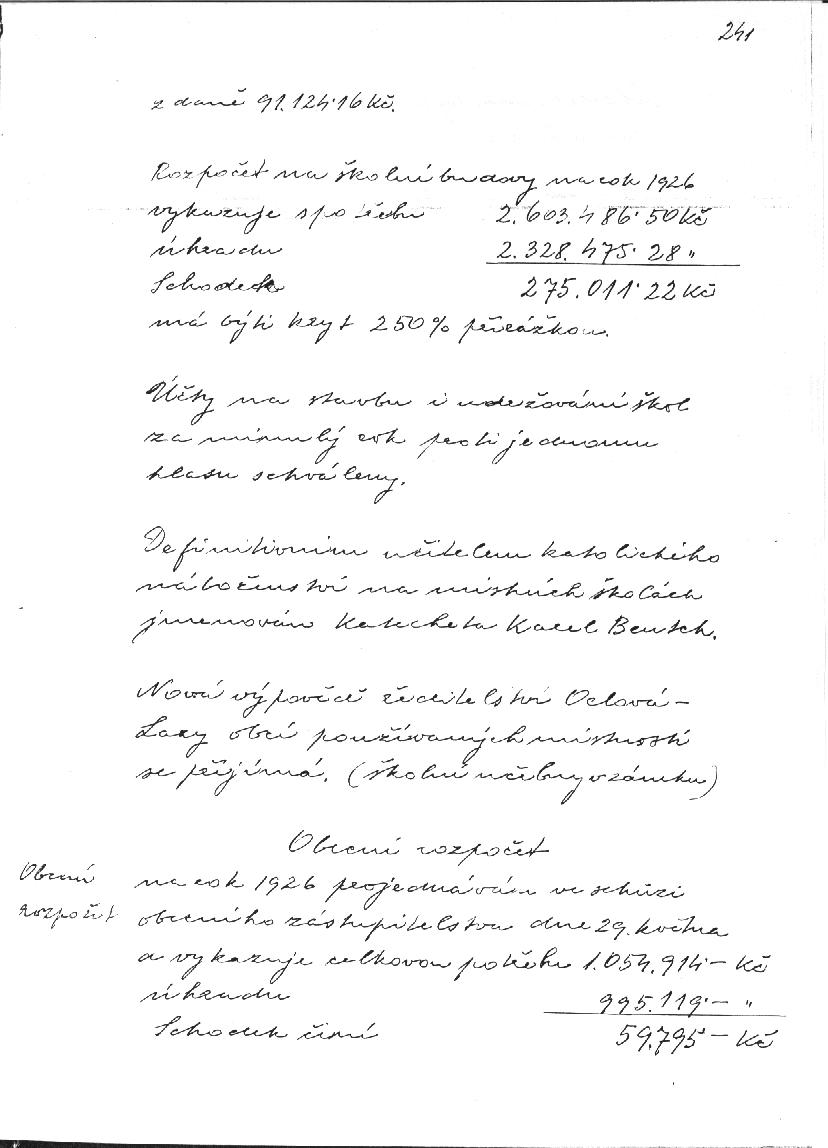 241
z daně 91.124·16 Kč.
Rozpočet na školní budovy na rok 1926
vykazuje spotřebu 2.603.486·50 Kč
úhradu 2.328.475·28 "
Schodek 275.011·22 Kč
má býti kryt 250% přirážkou.
Účty na stavbu i udržování škol
za minulý rok proti jednomu
hlasu schváleny.
Definitivním učitelem katolického
náboženství na místních školách
jmenován katecheta Karel Bentsch.
Nová výpověď ředitelství Orlová-
Lazy obcí používaných místností
se přijímá. (školní učebny v zámku)
Obecní rozpočet
Obecní
rozpočet
na rok 1926 projednáván ve schůzi
obecního zástupitelstva dne 29. května
a vykazuje celkovou potřebu 1.054.914 – Kč
úhradu 995.119·– "
Schodek činí 59.795 – Kč